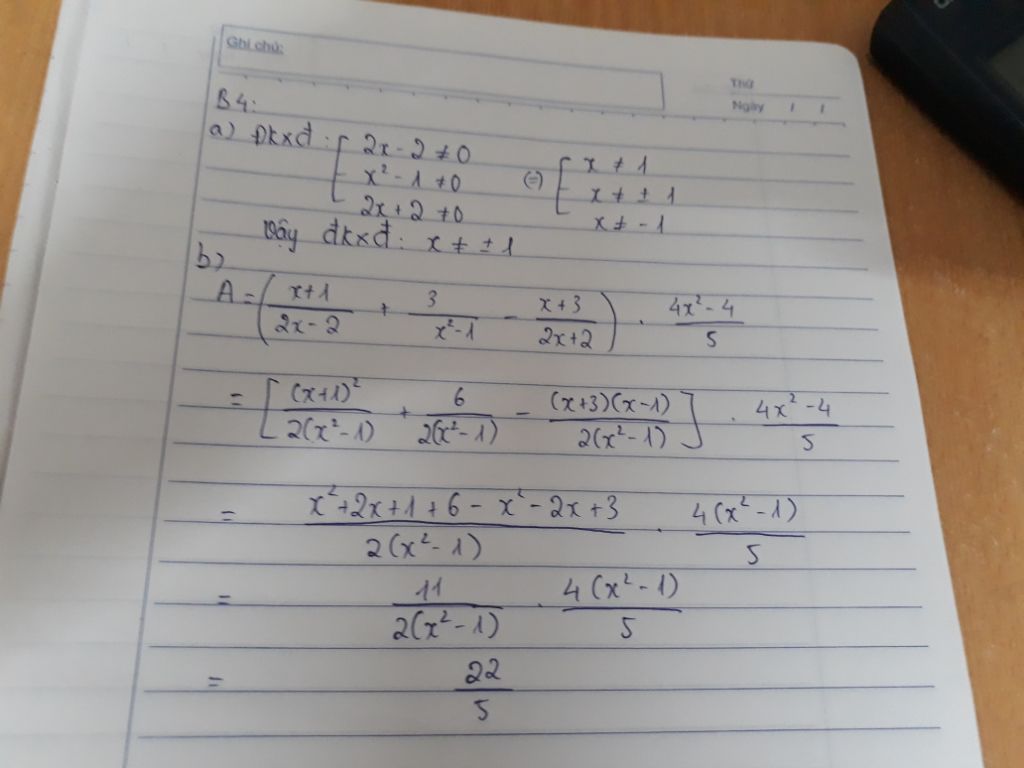 Ghi chú:
Thứ
Ngày / /
B4:
a) Đkxđ: [ 2x - 2 ≠ 0 (=) [ x ≠ 1
x² - 1 ≠ 0 x ≠ ± 1
2x + 2 ≠ 0 x ≠ - 1
Vậy đkxđ: x ≠ ± 1
b)
A = ( (x+1)/(2x-2) + 3/(x²-1) - (x+3)/(2x+2) ) . (4x²-4)/5
= [ (x+1)²/(2(x²-1)) + 6/(2(x²-1)) - (x+3)(x-1)/(2(x²-1)) ] . (4x²-4)/5
= (x²+2x+1+6-x²-2x+3)/(2(x²-1)) . 4(x²-1)/5
= 11/(2(x²-1)) . 4(x²-1)/5
= 22/5